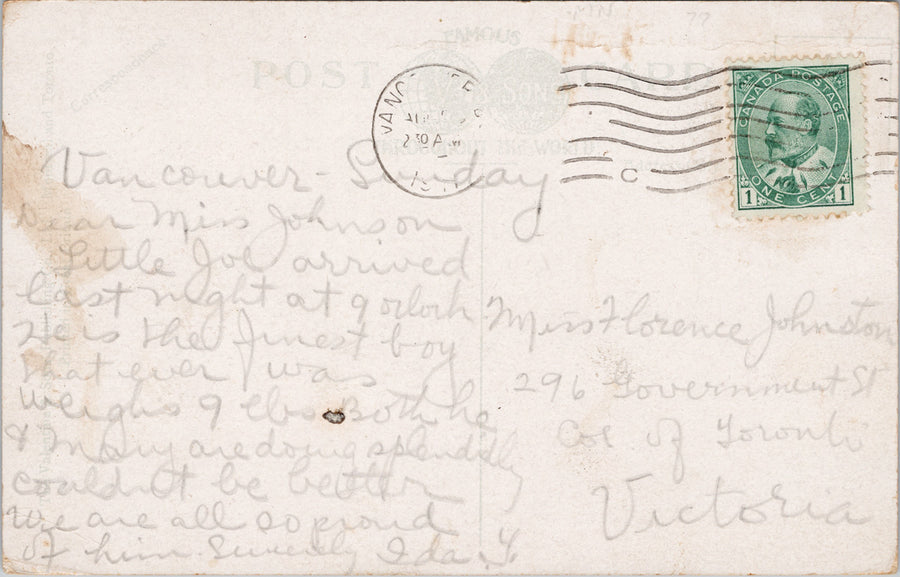 POST CARD
FAMOUS
THROUGHOUT THE WORLD
Correspondence
VANCOUVER
2 30 A
C
CANADA POSTAGE
ONE CENT
1 1
Vancouver - Sunday
Dear Miss Johnson
Little Joe arrived
last night at 9 oclock
He is the finest boy
that ever was
weighs 9 lbs Both he
& Mary are doing splendidly
couldn't be better
We are all so proud
of him. Sincerely Ida. Y.
Miss Florence Johnston
296 Government St
Cor of Toronto
Victoria